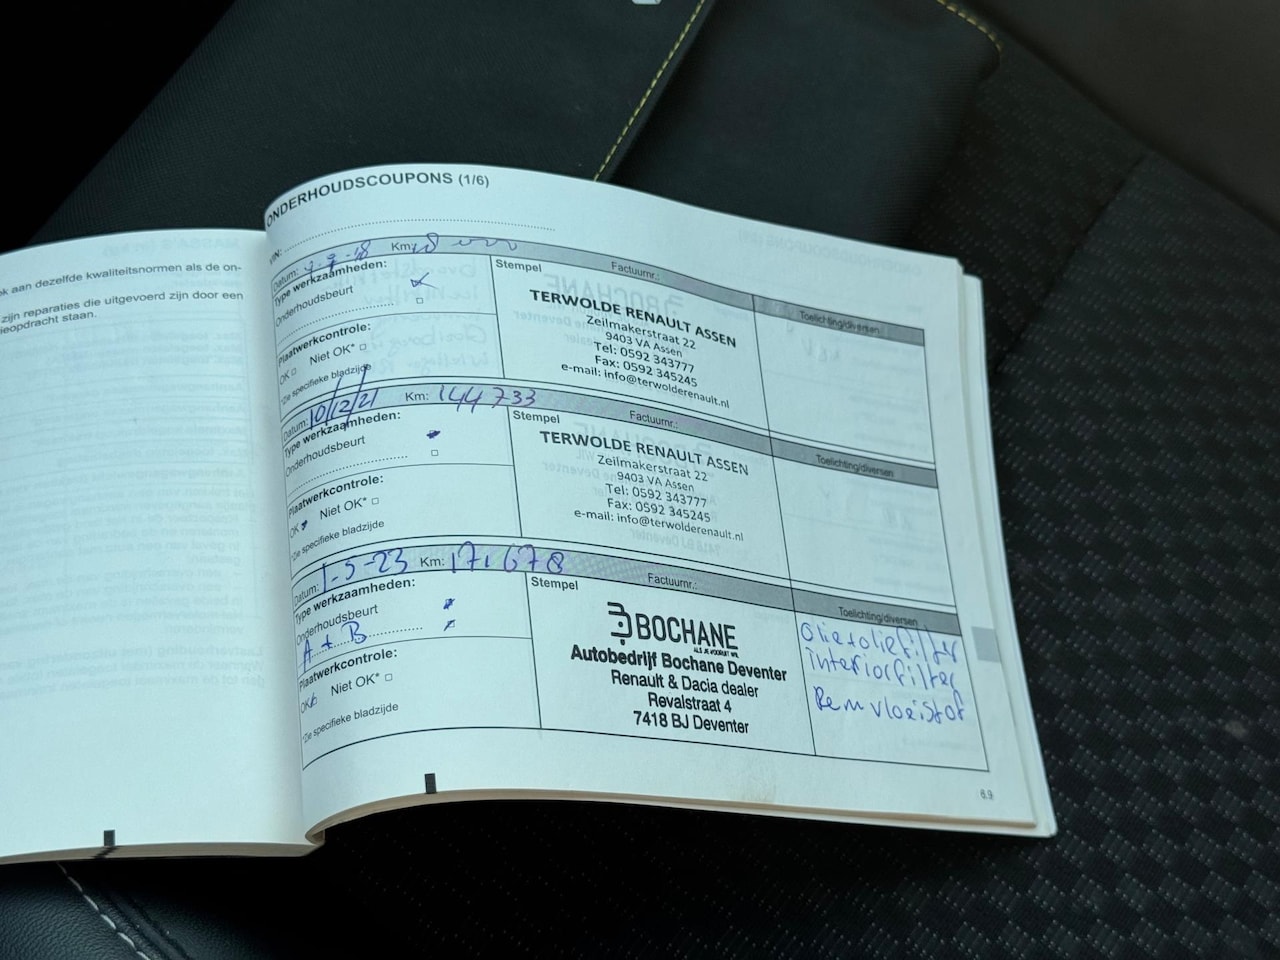 ek aan dezelfde kwaliteitsnormen als de on-
zijn reparaties die uitgevoerd zijn door een
ieopdracht staan.
ONDERHOUDSCOUPONS (1/6)
VIN:
Datum: Km:
Type werkzaamheden:
Onderhoudsbeurt
Plaatwerkcontrole:
OK Niet OK*
*Zie specifieke bladzijde
Stempel Factuurnr.:
TERWOLDE RENAULT ASSEN
Zeilmakerstraat 22
9403 VA Assen
Tel: 0592 343777
Fax: 0592 345245
e-mail: info@terwolderenault.nl
Toelichting/diversen
Datum: 10/12/21 Km: 144733
Type werkzaamheden:
Onderhoudsbeurt
Plaatwerkcontrole:
OK Niet OK*
*Zie specifieke bladzijde
Stempel Factuurnr.:
TERWOLDE RENAULT ASSEN
Zeilmakerstraat 22
9403 VA Assen
Tel: 0592 343777
Fax: 0592 345245
e-mail: info@terwolderenault.nl
Toelichting/diversen
Datum: 1-5-23 Km: 171678
Type werkzaamheden:
Onderhoudsbeurt
A + B
Plaatwerkcontrole:
OK Niet OK*
*Zie specifieke bladzijde
Stempel Factuurnr.:
BOCHANE
ALS JE VOORUIT WIL
Autobedrijf Bochane Deventer
Renault & Dacia dealer
Revalstraat 4
7418 BJ Deventer
Toelichting/diversen
Olie+oliefilter
interiorfilter
Remvloeistof
6.9